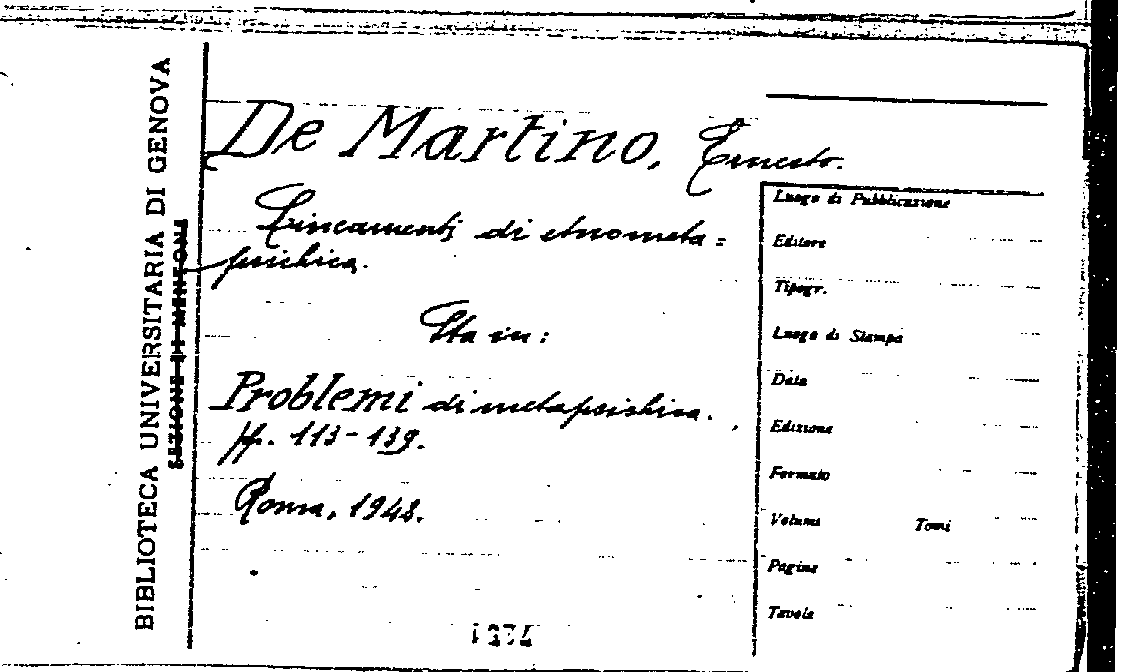 BIBLIOTECA UNIVERSITARIA DI GENOVA
SEZIONE DI MINFONI
De Martino, Ernesto.
Lineamenti di etnometa=
psichica.
Sta in:
Problemi di metapsichica.
pp. 113-139.
Roma, 1948.
Luogo di Pubblicazione
Editore
Tipogr.
Luogo di Stampa
Data
Edizione
Formato
Volumi Tomi
Pagine
Tavole